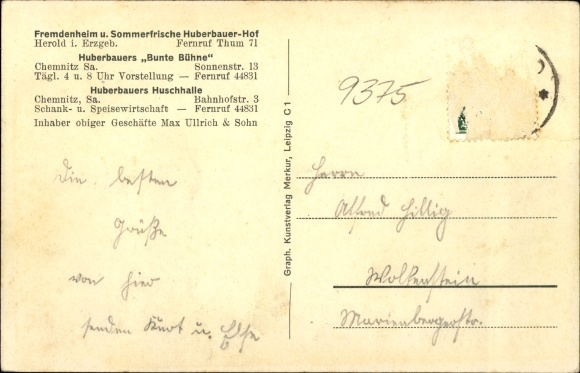 Fremdenheim u. Sommerfrische Huberbauer-Hof
Herold i. Erzgeb. Fernruf Thum 71
Huberbauers „Bunte Bühne"
Chemnitz Sa. Sonnenstr. 13
Tägl. 4 u. 8 Uhr Vorstellung — Fernruf 44831
Huberbauers Huschhalle
Chemnitz, Sa. Bahnhofstr. 3
Schank- u. Speisewirtschaft — Fernruf 44831
Inhaber obiger Geschäfte Max Ullrich & Sohn
Die besten
Grüße
von hier
senden Kurt u. Else
Graph. Kunstverlag Merkur, Leipzig C 1
9375
Herrn
Alfred Hillig
Wolkenstein
Marienbergerstr.